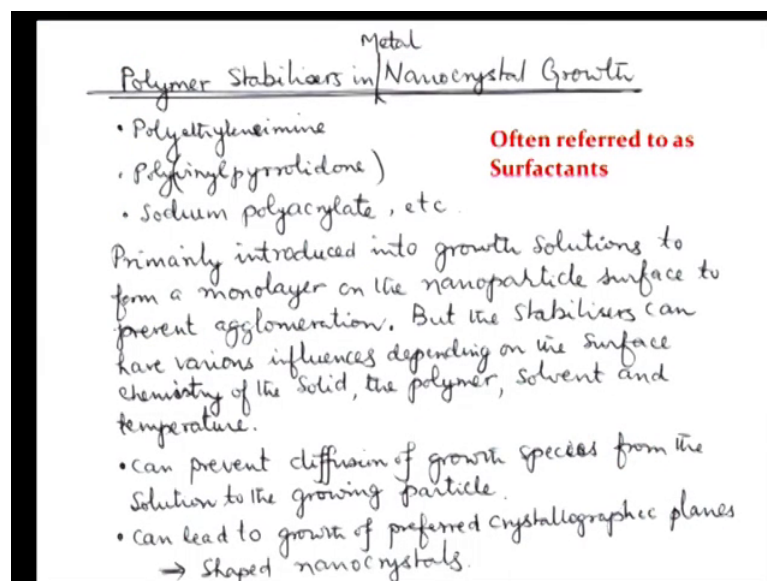 Polymer Stabilisers in Metal Nanocrystal Growth
• Polyethyleneimine
• Poly(vinylpyrrolidone)
• Sodium polyacrylate, etc.
Often referred to as
Surfactants
Primarily introduced into growth solutions to
form a monolayer on the nanoparticle surface to
prevent agglomeration. But the stabilisers can
have various influences depending on the surface
chemistry of the solid, the polymer, solvent and
temperature.
• can prevent diffusion of growth species from the
solution to the growing particle.
• can lead to growth of preferred crystallographic planes
→ Shaped nanocrystals.